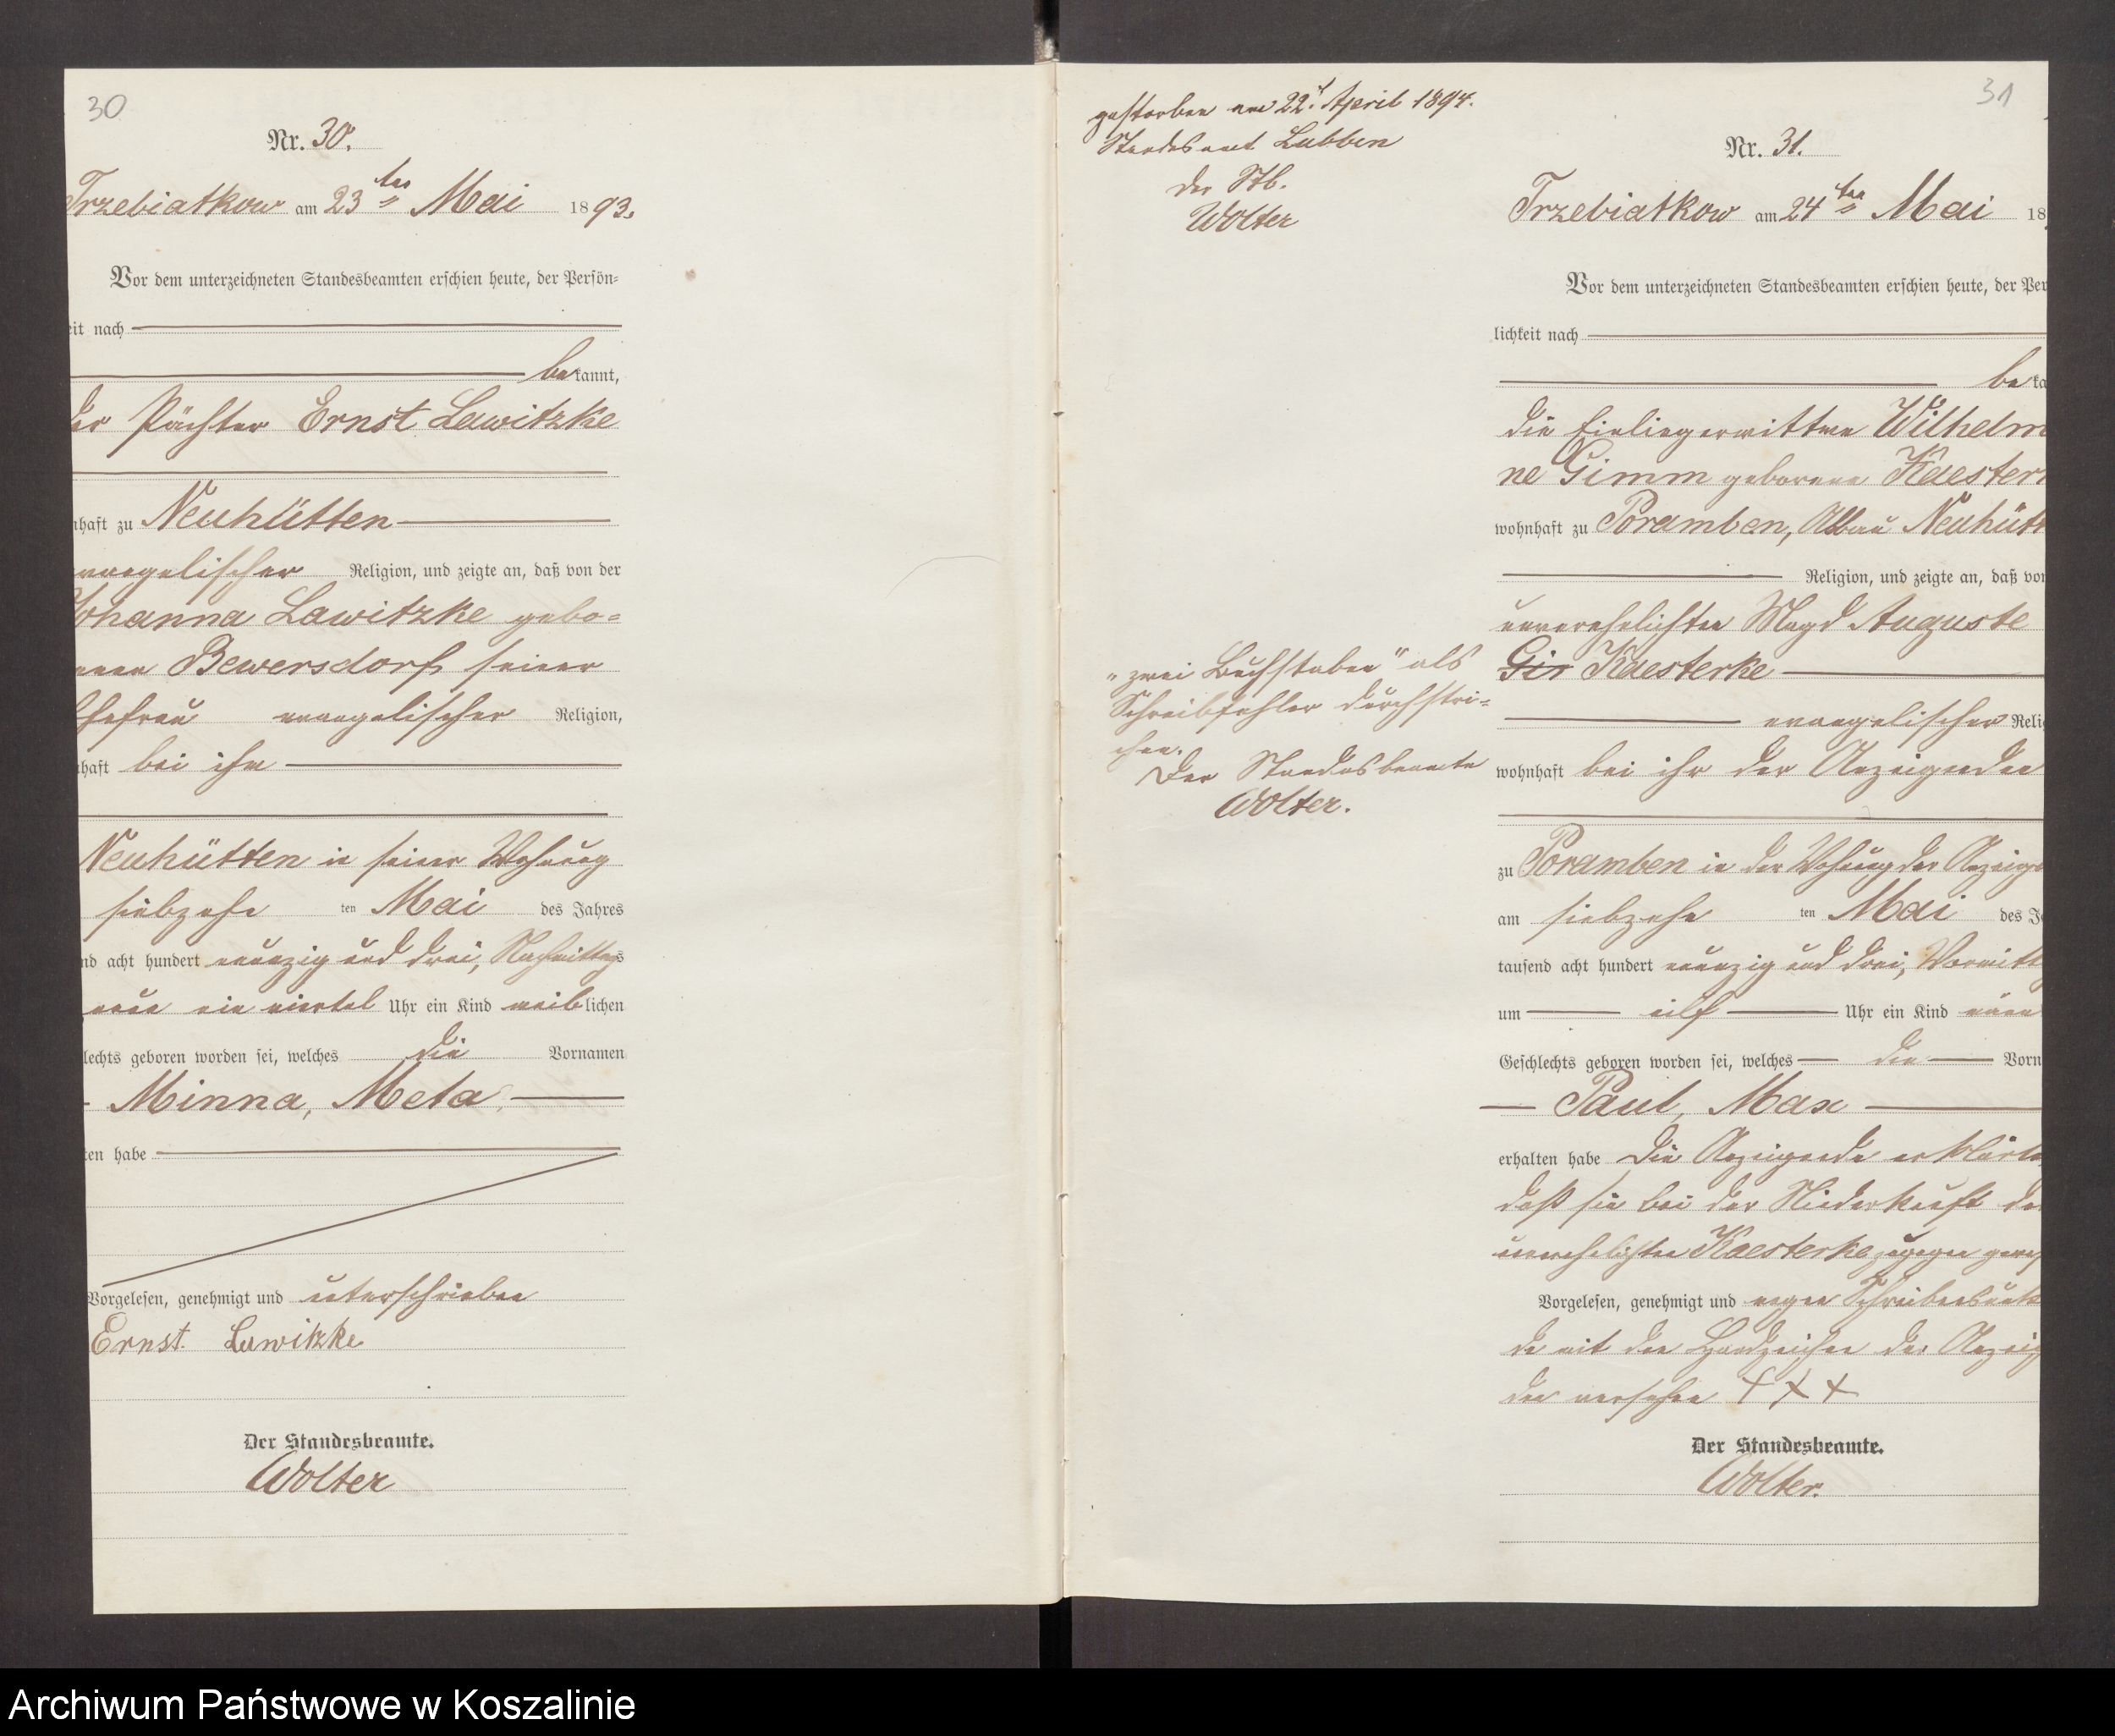 30
Nr. 30.
Trzebiatkow am 23ten Mai 1893.
Vor dem unterzeichneten Standesbeamten erschien heute, der Persön=
eit nach
bekannt,
der Pächter Ernst Lawitzke
nhaft zu Neuhütten
evangelischer Religion, und zeigte an, daß von der
Johanna Lawitzke gebo=
renen Bewersdorf seiner
Ehefrau evangelischer Religion,
haft bei ihm
Neuhütten in seiner Wohnung
siebzehn ten Mai des Jahres
nd acht hundert neunzig und drei, Nachmittags
neun ein viertel Uhr ein Kind weiblichen
lechts geboren worden sei, welches die Vornamen
Minna, Meta
ten habe
Vorgelesen, genehmigt und unterschrieben
Ernst Lawitzke
Der Standesbeamte.
Wolter
31
gestorben am 22t. April 1894.
Standesamt Lubben
Der Stb.
Wolter
Nr. 31.
Trzebiatkow am 24ten Mai 18
Vor dem unterzeichneten Standesbeamten erschien heute, der Per
lichkeit nach
beka
die Einliegerwittwe Wilhelm
ne Gimm geborene Kaester
wohnhaft zu Poramben, Abbau Neuhütt
Religion, und zeigte an, daß von
unverehelichten Magd Auguste
Gir Kaesterke
"zwei Buchstaben" als
Schreibfehler durchstri=
chen.
Der Standesbeamte
Wolter.
evangelischer Reli
wohnhaft bei ihr der Anzeigenden
zu Poramben in der Wohnung der Anzeige
am siebzehn ten Mai des J
tausend acht hundert neunzig und drei, Vormitt
um eilf Uhr ein Kind männ
Geschlechts geboren worden sei, welches die Vorn
Paul, Max
erhalten habe Die Anzeigende erklärte
daß sie bei der Niederkunft der
unverehelichten Kaesterke zugegen gewes
Vorgelesen, genehmigt und wegen Schreibensunk
de mit den Handzeichen der Anzeig
den versehen + + +
Der Standesbeamte.
Wolter.
Archiwum Państwowe w Koszalinie